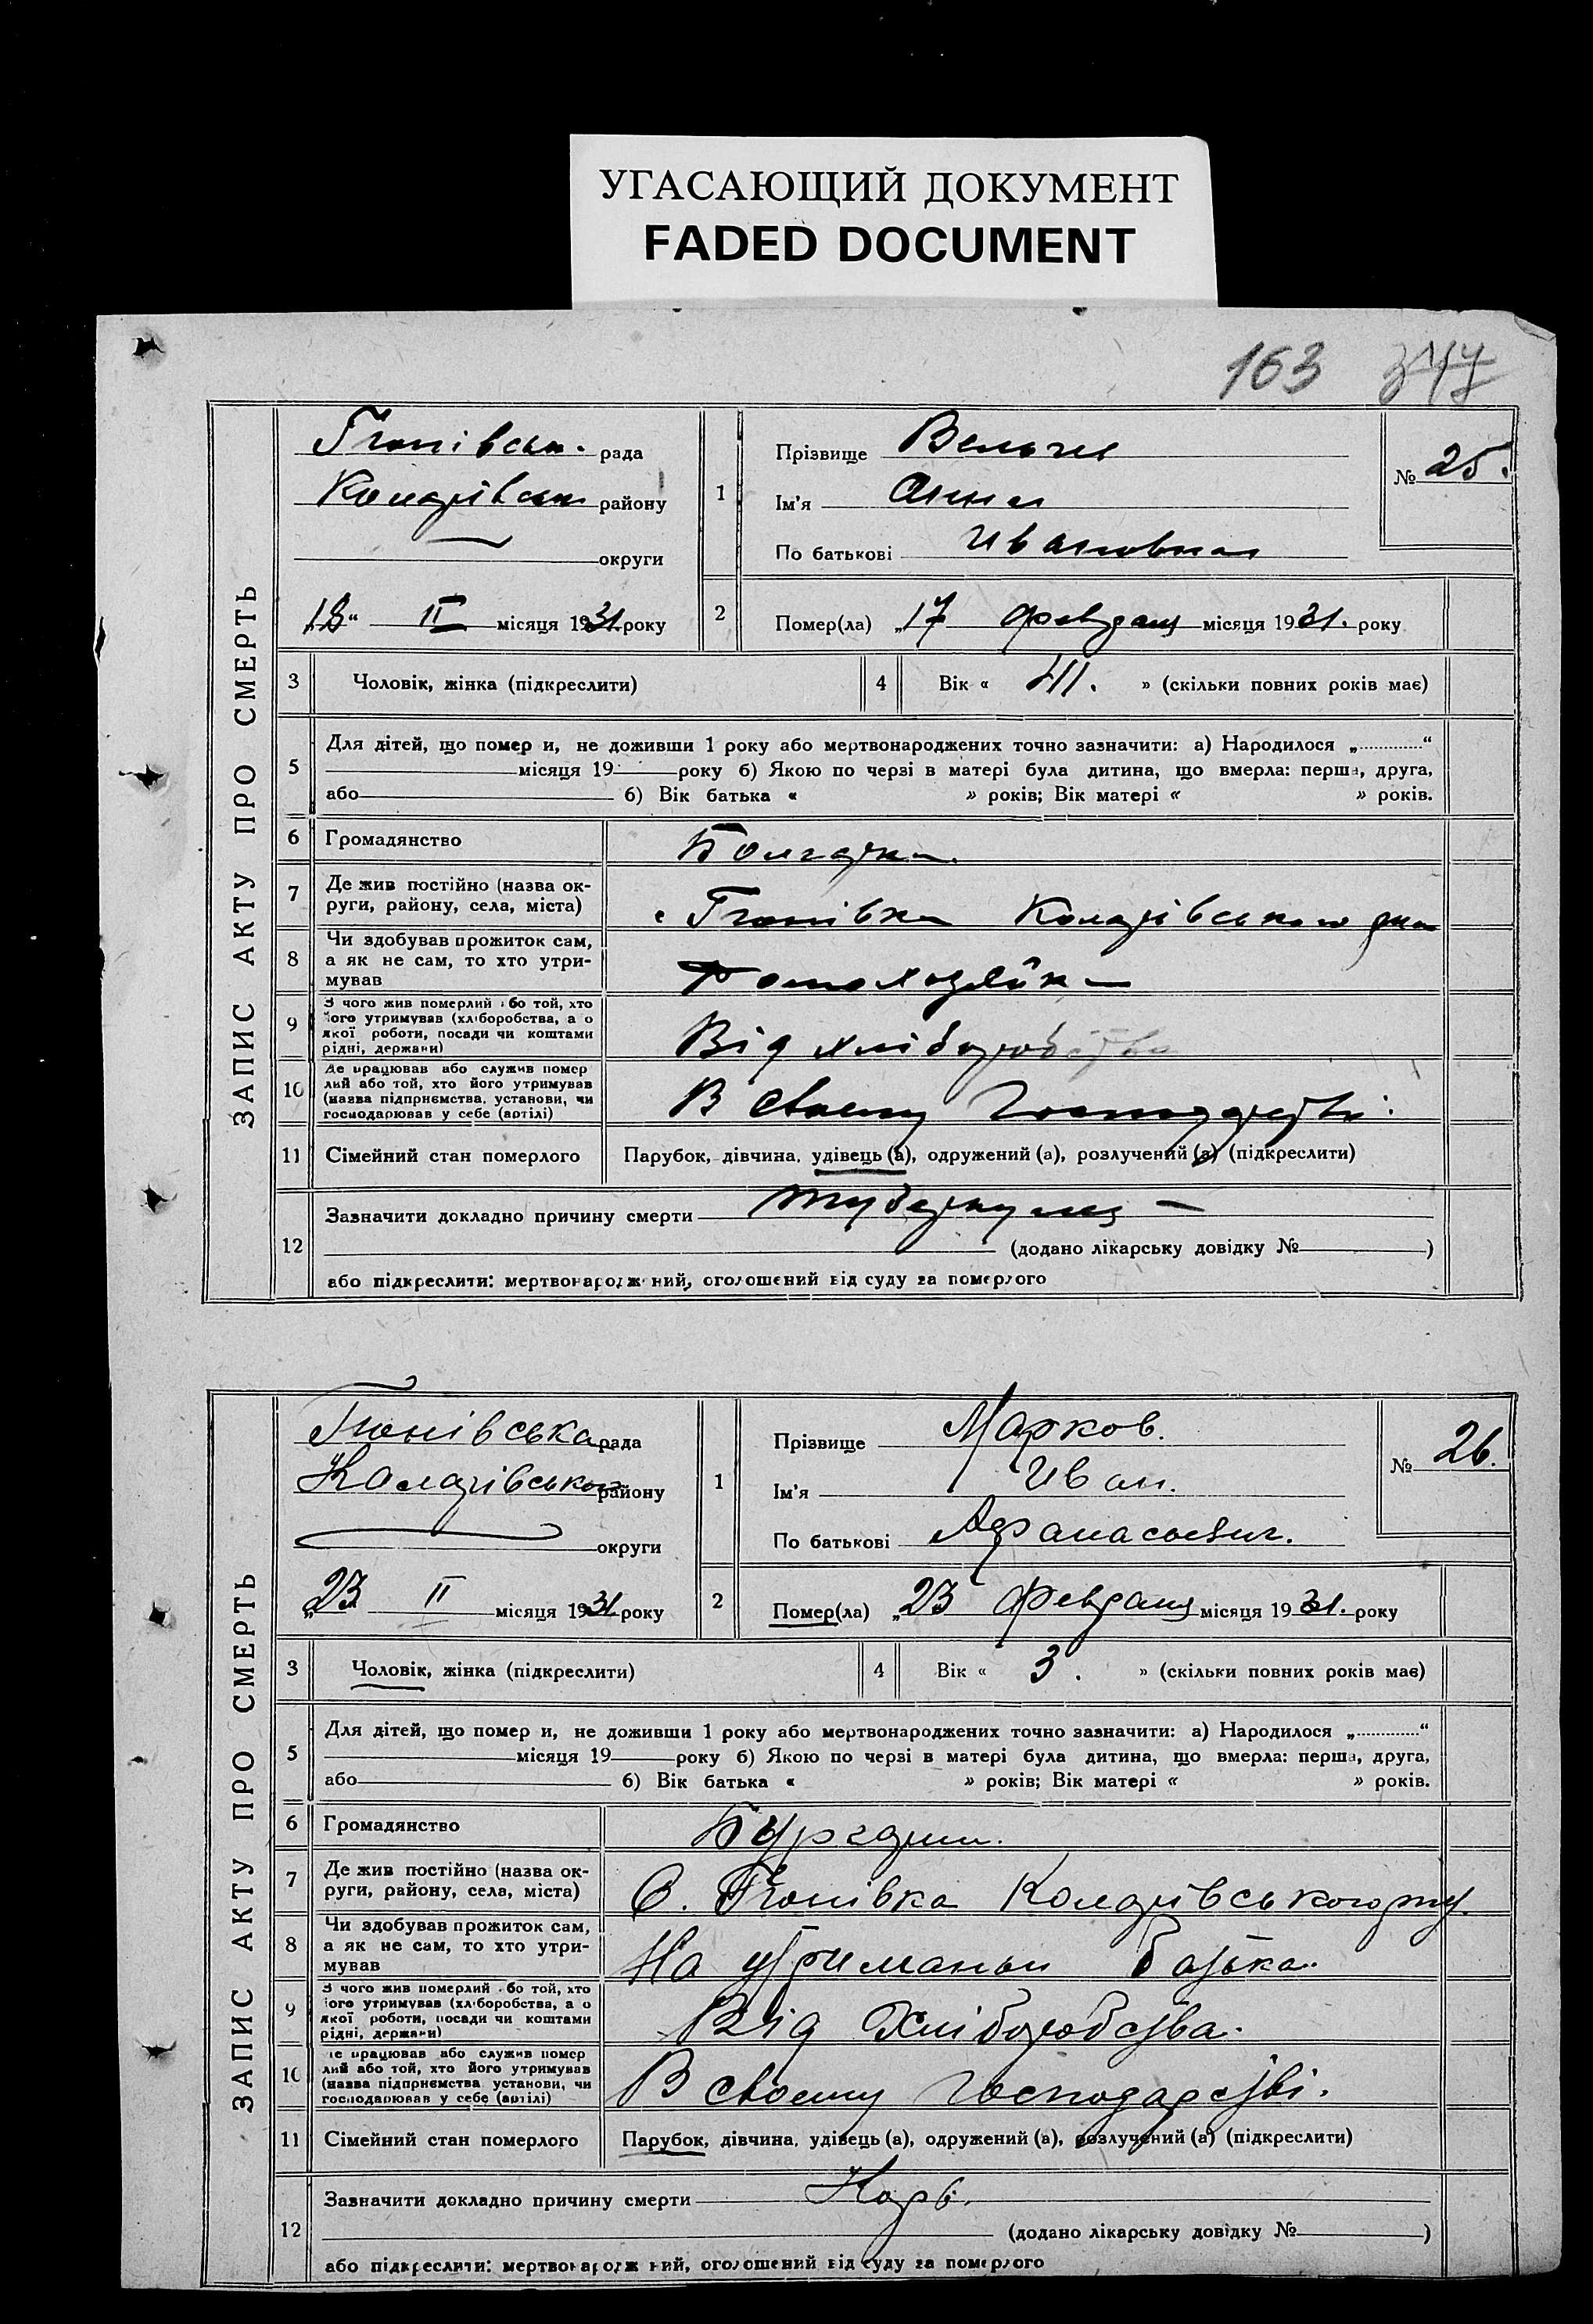 УГАСАЮЩИЙ ДОКУМЕНТ
FADED DOCUMENT
163 347
ЗАПИС АКТУ ПРО СМЕРТЬ
Гюнівська рада
Коларівськ району
округи
18" II місяця 1931 року
1
Прізвище Вельчев
Ім'я Анна
По батькові Ивановная
№ 25.
2
Помер(ла) „17 февраля місяця 1931. року
3 Чоловік, жінка (підкреслити)
4 Вік « 41. » (скільки повних років має)
5
Для дітей, що помер и, не доживши 1 року або мертвонароджених точно зазначити: а) Народилося „ “
місяця 19 року б) Якою по черзі в матері була дитина, що вмерла: перша, друга,
або б) Вік батька « » років; Вік матері « » років.
6 Громадянство Болгарка.
7 Де жив постійно (назва ок-
руги, району, села, міста)
с Гюнівка Коларівського р-на
8 Чи здобував прожиток сам,
а як не сам, то хто утри-
мував
домохозяйка
9 З чого жив померлий або той, хто
його утримував (хліборобства, а о
якої роботи, посади чи коштами
рідні, держави)
Від хліборобства
10 Де працював або служив помер
лий або той, хто його утримував
(назва підприємства, установи, чи
господарював у себе (артілі)
В своему господарстві.
11 Сімейний стан померлого Парубок, дівчина, удівець (а), одружений (а), розлучений (а) (підкреслити)
12
Зазначити докладно причину смерти туберкулез
(додано лікарську довідку № )
або підкреслити: мертвонароджений, оголошений від суду за померлого
ЗАПИС АКТУ ПРО СМЕРТЬ
Гюнівська рада
Коларівського району
округи
„23 II місяця 1931 року
1
Прізвище Марков.
Ім'я Иван.
По батькові Афанасович.
№ 26.
2
Помер(ла) „23 февраля місяця 1931. року
3 Чоловік, жінка (підкреслити)
4 Вік « 3. » (скільки повних років має)
5
Для дітей, що помер и, не доживши 1 року або мертвонароджених точно зазначити: а) Народилося „ “
місяця 19 року б) Якою по черзі в матері була дитина, що вмерла: перша, друга,
або б) Вік батька « » років; Вік матері « » років.
6 Громадянство
7 Де жив постійно (назва ок-
руги, району, села, міста)
С. Гюнівка Коларівського р-ну.
8 Чи здобував прожиток сам,
а як не сам, то хто утри-
мував
На утриманьи батька.
9 З чого жив померлий або той, хто
його утримував (хліборобства, а о
якої роботи, посади чи коштами
рідні, держави)
Від Хліборобства.
10 Де працював або служив помер
лий або той, хто його утримував
(назва підприємства, установи, чи
господарював у себе (артілі)
В своему господарстві.
11 Сімейний стан померлого Парубок, дівчина, удівець (а), одружений (а), розлучений (а) (підкреслити)
12
Зазначити докладно причину смерти Корь.
(додано лікарську довідку № )
або підкреслити: мертвонароджений, оголошений від суду за померлого